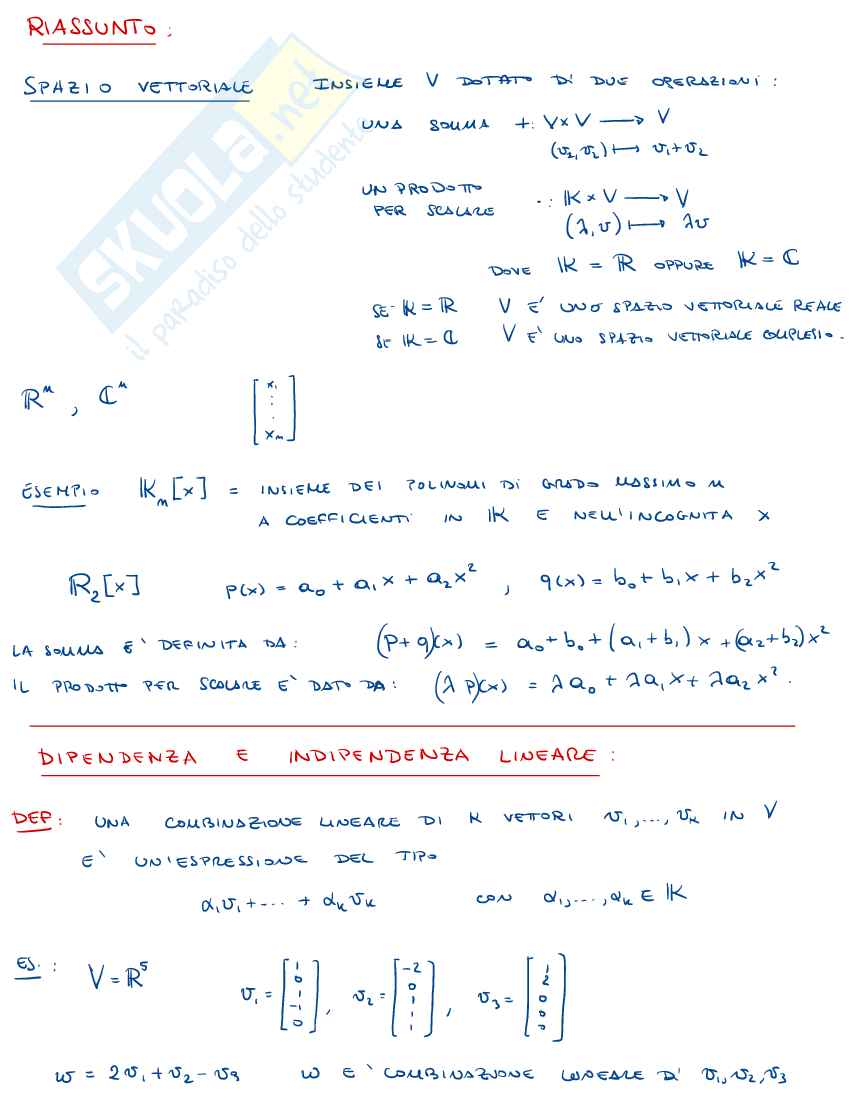 RIASSUNTO:
SPAZIO VETTORIALE INSIEME V DOTATO DI DUE OPERAZIONI:
UNA SOMMA +: V×V ⟶ V
(v₂,v₂) ⟼ v₁+v₂
UN PRODOTTO
PER SCALARE ·: 𝕂×V ⟶ V
(λ,v) ⟼ λv
DOVE 𝕂 = ℝ OPPURE 𝕂 = ℂ
SE 𝕂 = ℝ V E' UNO SPAZIO VETTORIALE REALE
SE 𝕂 = ℂ V E' UNO SPAZIO VETTORIALE COMPLESSO.
ℝⁿ, ℂⁿ [x₁ : . xₙ]
ESEMPIO 𝕂ₙ[x] = INSIEME DEI POLINOMI DI GRADO MASSIMO n
A COEFFICIENTI IN 𝕂 E NELL'INCOGNITA X
ℝ₂[x] p(x) = a₀ + a₁x + a₂x² , q(x) = b₀ + b₁x + b₂x²
LA SOMMA E' DEFINITA DA: (p+q)(x) = a₀+b₀+(a₁+b₁)x+(a₂+b₂)x²
IL PRODOTTO PER SCALARE E' DATO DA: (λp)(x) = λa₀ + λa₁x + λa₂x².
DIPENDENZA E INDIPENDENZA LINEARE:
DEF: UNA COMBINAZIONE LINEARE DI K VETTORI v₁,...,vₖ IN V
E' UN'ESPRESSIONE DEL TIPO
α₁v₁+...+αₖvₖ CON α₁,...,αₖ ∈ 𝕂
ES.: V = ℝ⁵ v₁ = [1 0 1 -1 0], v₂ = [-2 0 1 1 1], v₃ = [1 2 0 0 0]
w = 2v₁+v₂-v₃ w E' COMBINAZIONE LINEARE DI v₁,v₂,v₃
SKUOLA.net
il paradiso dello studente